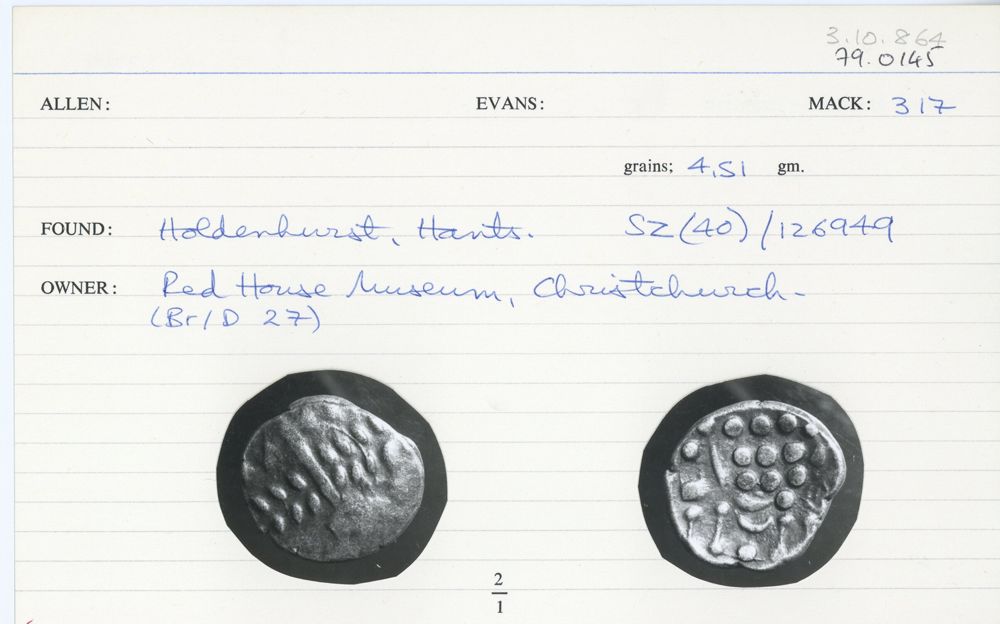 3.10.864
79.0145
ALLEN: EVANS: MACK: 317
grains; 4.51 gm.
FOUND: Holdenhurst, Hants. SZ(40)/126949
OWNER: Red House Museum, Christchurch-
(Br/D 27)
2
1